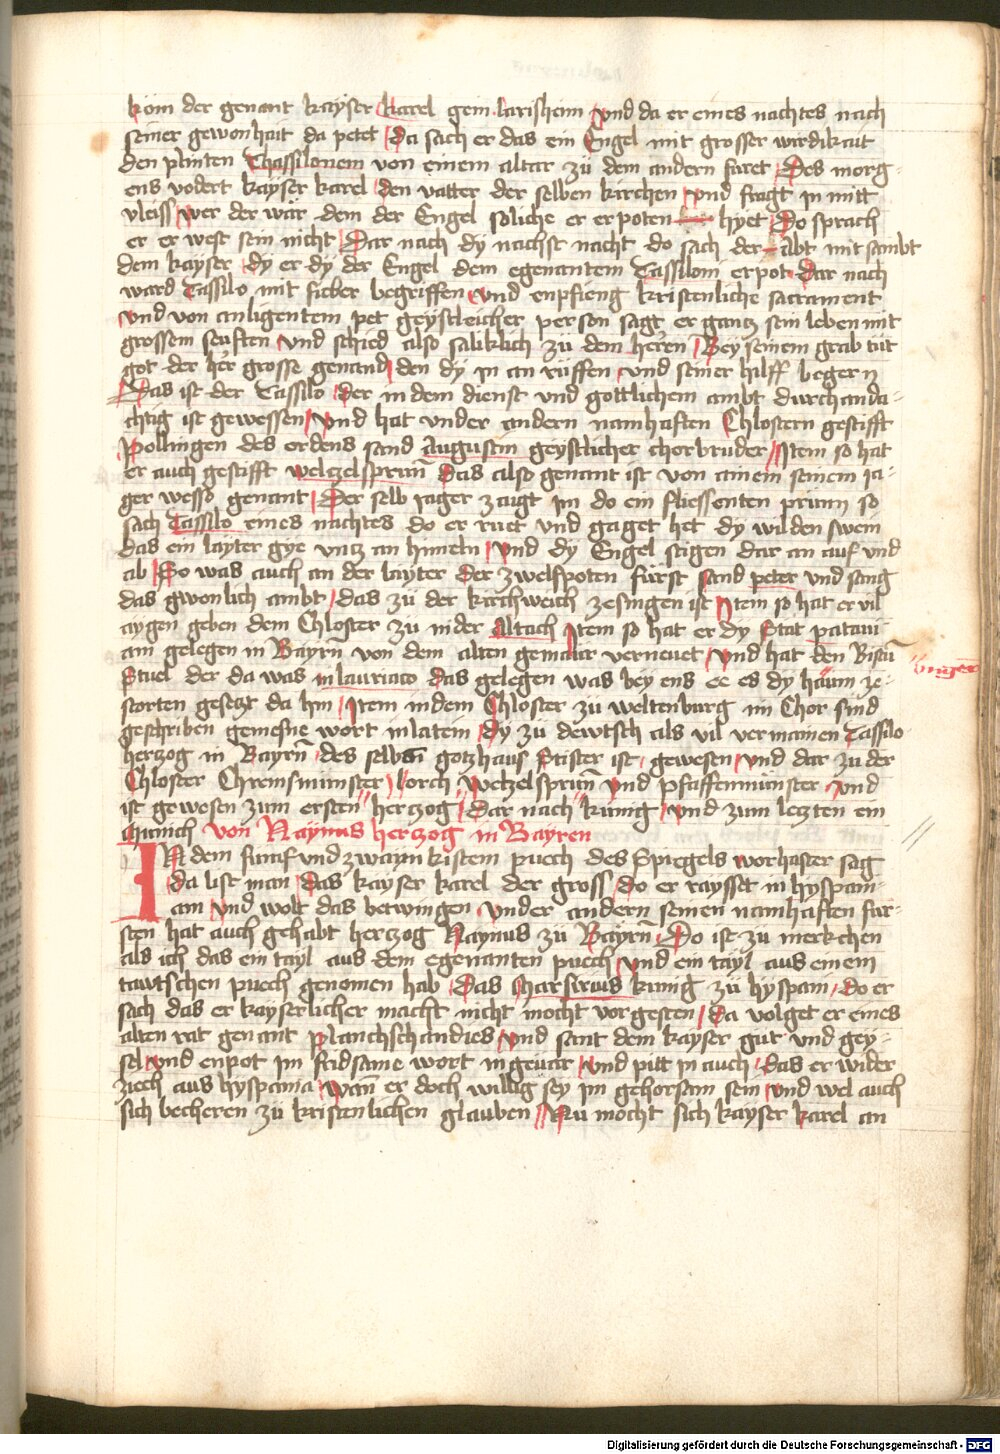 kom der genant kayser karel gein larisheim vnd da er eines nachtes nach
seiner gewonhait da petet Da sach er das ein Engel mit grosser wirdikait
den plinten Thassilonem von einem altar zü dem andern füret Des morg-
ens vodert kayser karel den vatter der selben kirchen vnd fragt in mitt
vleiss wer der wär dem der Engel soliche er erpoten hyet Do sprach
er er west sein nicht Dar nach dy nachst nacht do sach der abt mit sambt
dem kayser dy er dy der Engel dem egenantem Tassiloni erpot Dar nach
ward Tassilo mit fieber begriffen vnd enpfieng kristenliche sacrament
vnd von anligentem pet geystleicher person sagt er gantz sein leben mit
grossem seuften vnd schied also säliklich zü dem herren Bey seinem grab tüt
got der her grosse genand den dy in an rüffen vnd seiner hilff begern
Das ist der Tassilo der in dem dienst vnd gottlichem ambt durch anda-
chtig ist gewessen vnd hat vnder andern namhaften Chlostern gestifft
Pollingen des ordens sand augustin geystlicher chorbruder Item so hat
er auch gestifft weltzelsprunn Das also genant ist von ainem seinem ja-
ger wesso genant Der selb jager zaigt im do ein fliessenten prunn so
sach Tassilo eines nachtes do er ruet vnd gaget het dy wilden swein
das ein layter gye vntz an himeln vnd dy Engel stigen dar an auf vnd
ab So was auch an der layter der zwelfpoten fürst sand peter vnd sang
das gwonlich ambt das zü der kirchweich zesingen ist Item so hat er vil
aygen geben dem Chloster zu nider Altach Item so hat er dy Stat patavi
am gelegen in Bayrn von dem alten gemäür vernewet vnd hat den Bistum
Stuel der da was in lauriaco das gelegen was bey ens ee es dy hawn ze-
storten gesetzt da hin Item in dem Chloster zu weltenburg im Chor sind
geschriben gemeine wort in latein dy zü dewtsch als vil vermainen Tassilo
hertzog in Bayrn des selben gotzhaus Stifter ist gewesen vnd dar zu der
Chloster Chremsmünster lorch wetzelsprun vnd pfaffenmünster vnd
ist gewesen zum ersten hertzog Dar nach künig vnd zum letzten ein
münich von Naymus hertzog in Bayren
In dem fünf vnd zwaintzkistem puech des Spiegels worhafter sag
da list man das kayser karel der gross do er raysset in hyspani-
am vnd wolt das betwingen vnder andern seinen namhaften für-
sten hat auch gehabt hertzog Naymus zü Bayrn Do ist zu merkchen
als ich das ein tayl aus dem egenanten puech vnd ein tayl aus einem
tawtschen puech genomen hab Das Marsirius kunig zü hyspani do er
sach das er kayserlicher macht nicht mocht vor gesten Da volget er eines
alten rat genant planchschandies vnd sant dem kayser gut vnd gey-
sel vnd enpot im fridsame wort in gevär vnd pitt in auch das er wider
ziech aus hyspania wan er doch willig sey im gehorsam sein vnd wel auch
sich becheren zü kristenlichen glauben Nu mocht sich kayser karel an
Digitalisierung gefördert durch die Deutsche Forschungsgemeinschaft - DFG